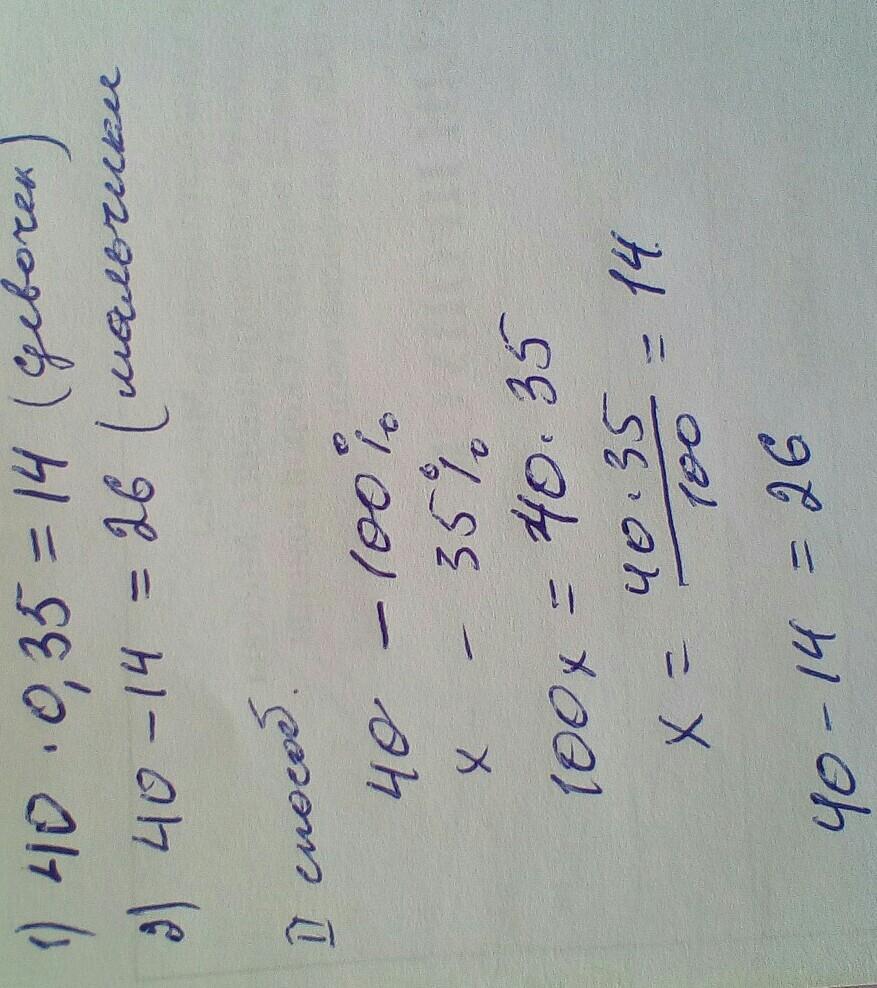 1) 40 · 0,35 = 14 (девочек)
2) 40 - 14 = 26 (мальчики
II способ.
40 - 100%
x - 35%
100x = 40 · 35
x = 40 · 35 / 100 = 14
40 - 14 = 26